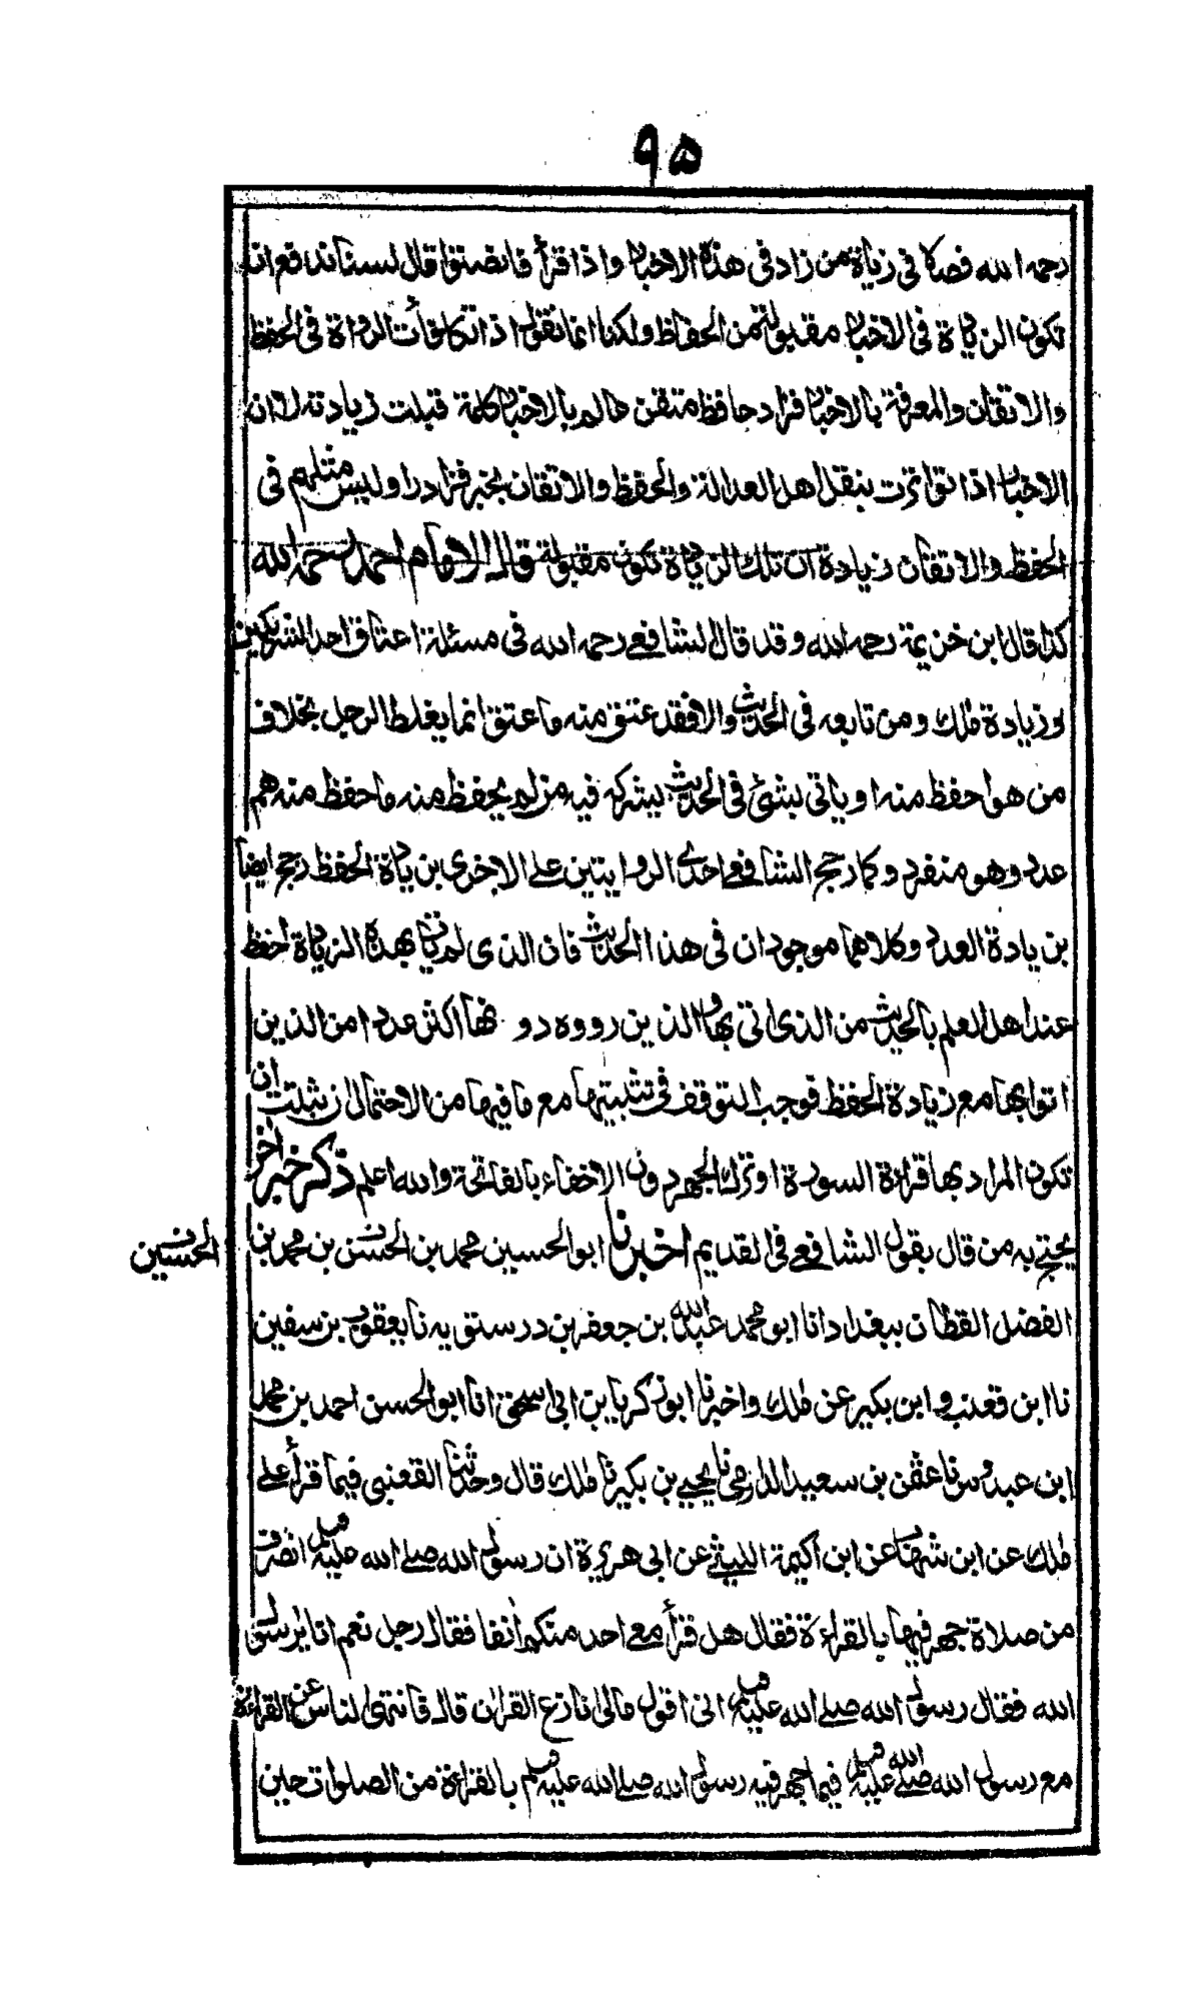 ۹۵
رحمه الله فصلا في زيادة من زاد في هذه الاخبار واذا قرأ فانصتوا قال لسنا ندفع ان
تكون الزيادة في الاخبار مقبولة من الحفاظ ولكنا انما نقول اذا تكافأت الرواة في الحفظ
والاتقان والمعرفة بالاخبار فزاد حافظ متقن عالم بالاخبار كلمة قبلت زيادته لا ان
الاخبار اذا تواترت بنقل اهل العدالة والحفظ والاتقان بخبر فزاد راو ليس مثلهم في
الحفظ والاتقان زيادة ان تلك الزيادة تكون مقبولة قال الامام احمد رحمه الله
كذا قال ابن خزيمة رحمه الله وقد قال الشافعي رحمه الله في مسئلة اعتاق احد الشريكين
وزيادة ملك ومن تابعه في الحديث والا فقد عتق منه ما عتق انما يغلط الرجل بخلاف
من هو احفظ منه او ياتي بشئ في الحديث يشركه فيه من لم يحفظ منه ما حفظ منه هم
عدد وهو منفرد وكما رجح الشافعي احدى الروايتين على الاخرى بزيادة الحفظ رجح ايضا
بزيادة العدد وكلاهما موجودان في هذا الحديث فان الذي لم يات بهذه الزيادة احفظ
عند اهل العلم بالحديث من الذي اتى بها والذين رووه دونها اكثر عددا من الذين
اتوا بها مع زيادة الحفظ فوجب التوقف في تثبيتها مع ما فيها من الاحتمال ان ثبتت ان
تكون المراد بها قراءة السورة او ترك الجهر دون الاخفاء بالفاتحة والله اعلم ذكر خبر اخر
يحتج به من قال بقول الشافعي في القديم اخبرنا ابو الحسين محمد بن الحسن بن محمد بن
الحسين
الفضل القطان ببغداد انا ابو محمد عبد الله بن جعفر بن درستويه نا يعقوب بن سفين
نا ابن قعنب وابن بكير عن ملك واخبرنا ابو زكريا بن ابي اسحق انا ابو الحسن احمد بن محمد
ابن عبدوس نا عثمن بن سعيد الدارمي نا يحيى بن بكير نا ملك قال وحدثنا القعنبي فيما قرأ على
ملك عن ابن شهاب عن ابن اكيمة الليثي عن ابي هريرة ان رسول الله صلى الله عليه وسلم انصرف
من صلاة جهر فيها بالقراءة فقال هل قرأ معي احد منكم انفا فقال رجل نعم انا يا رسول
الله فقال رسول الله صلى الله عليه وسلم اني اقول مالي انازع القران قال فانتهى الناس عن القراءة
مع رسول الله صلى الله عليه وسلم فيما جهر فيه رسول الله صلى الله عليه وسلم بالقراءة من الصلوات حين